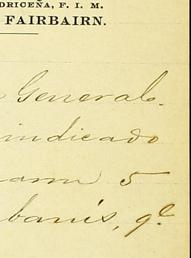 DRICEÑA, F. I. M.
FAIRBAIRN.
General.
indicado
5
banís, qe